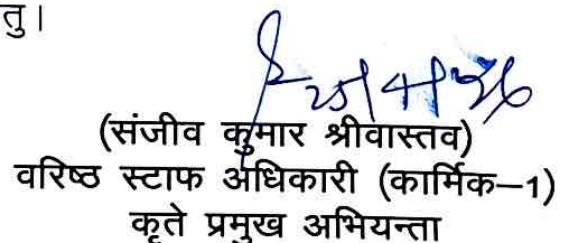 तु।
25/4/26
(संजीव कुमार श्रीवास्तव)
वरिष्ठ स्टाफ अधिकारी (कार्मिक–1)
कृते प्रमुख अभियन्ता